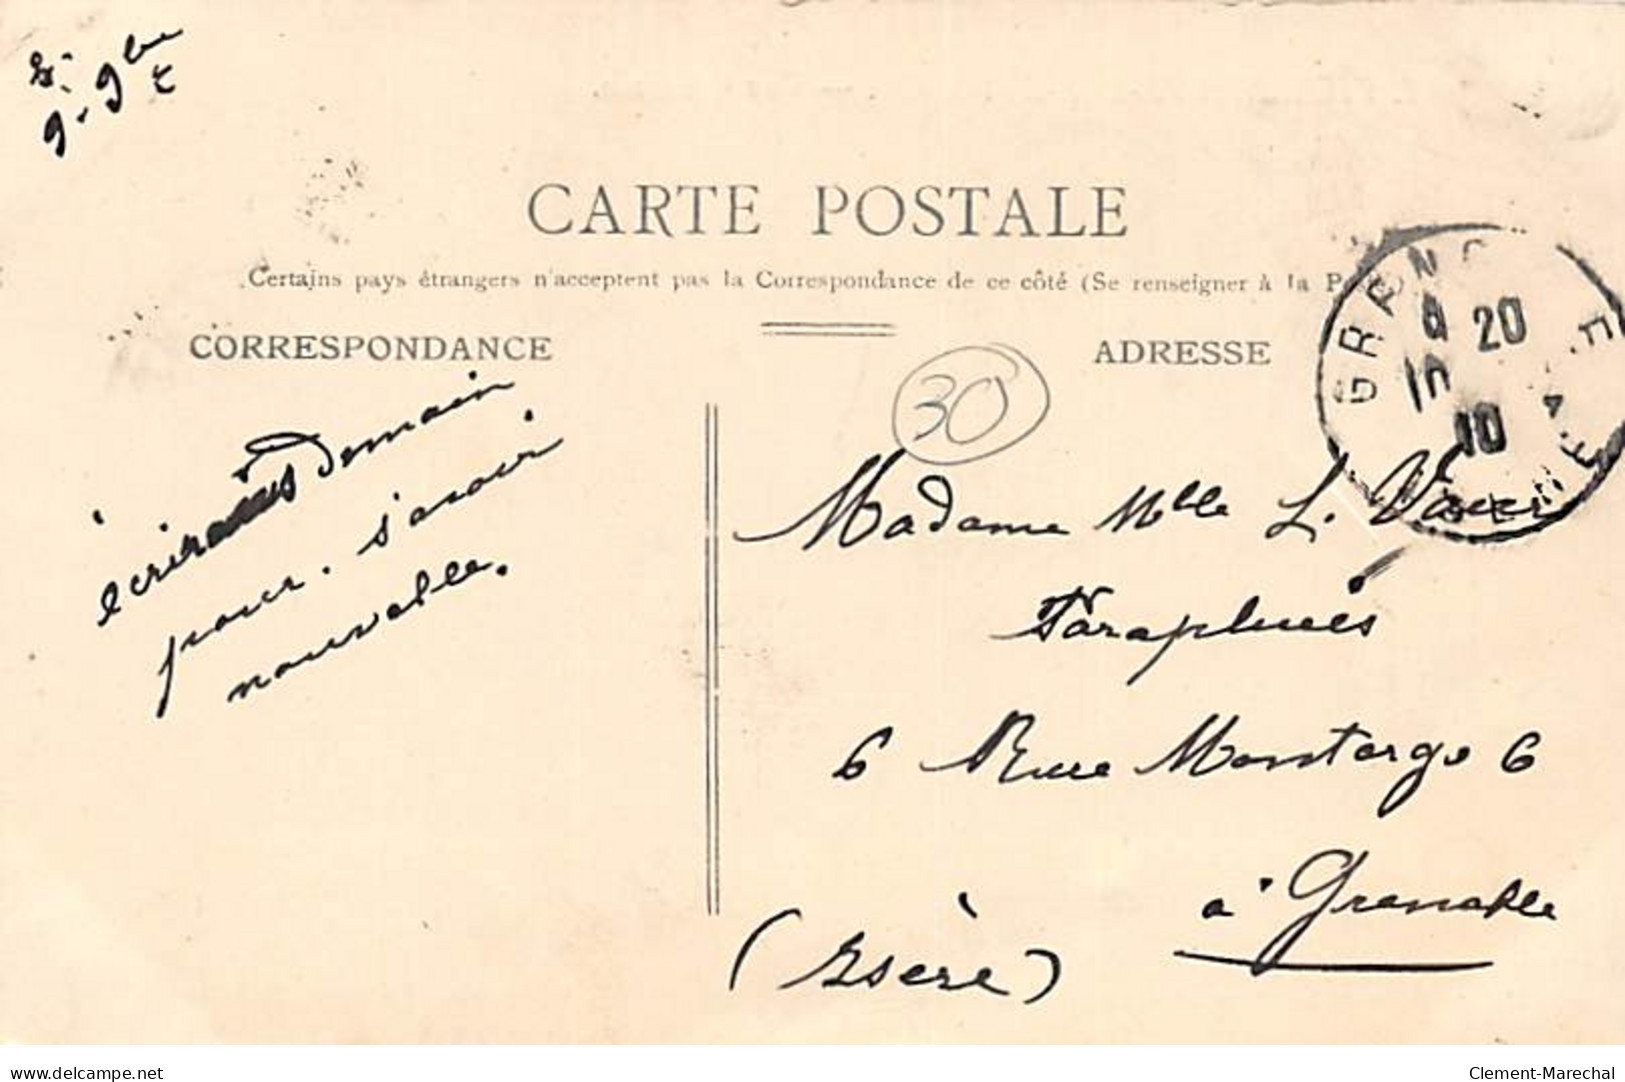 9-9bre
CARTE POSTALE
Certains pays étrangers n'acceptent pas la Correspondance de ce côté (Se renseigner à la Poste)
CORRESPONDANCE
ADRESSE
30
GRENOBLE
20
10
10
ISERE
écrirais demain
pour. s'avoir
nouvelle.
Madame Mlle L.
Parapluies
6 Rue Montorge 6
à Grenoble
(Isère)
www.delcampe.net
Clement-Marechal